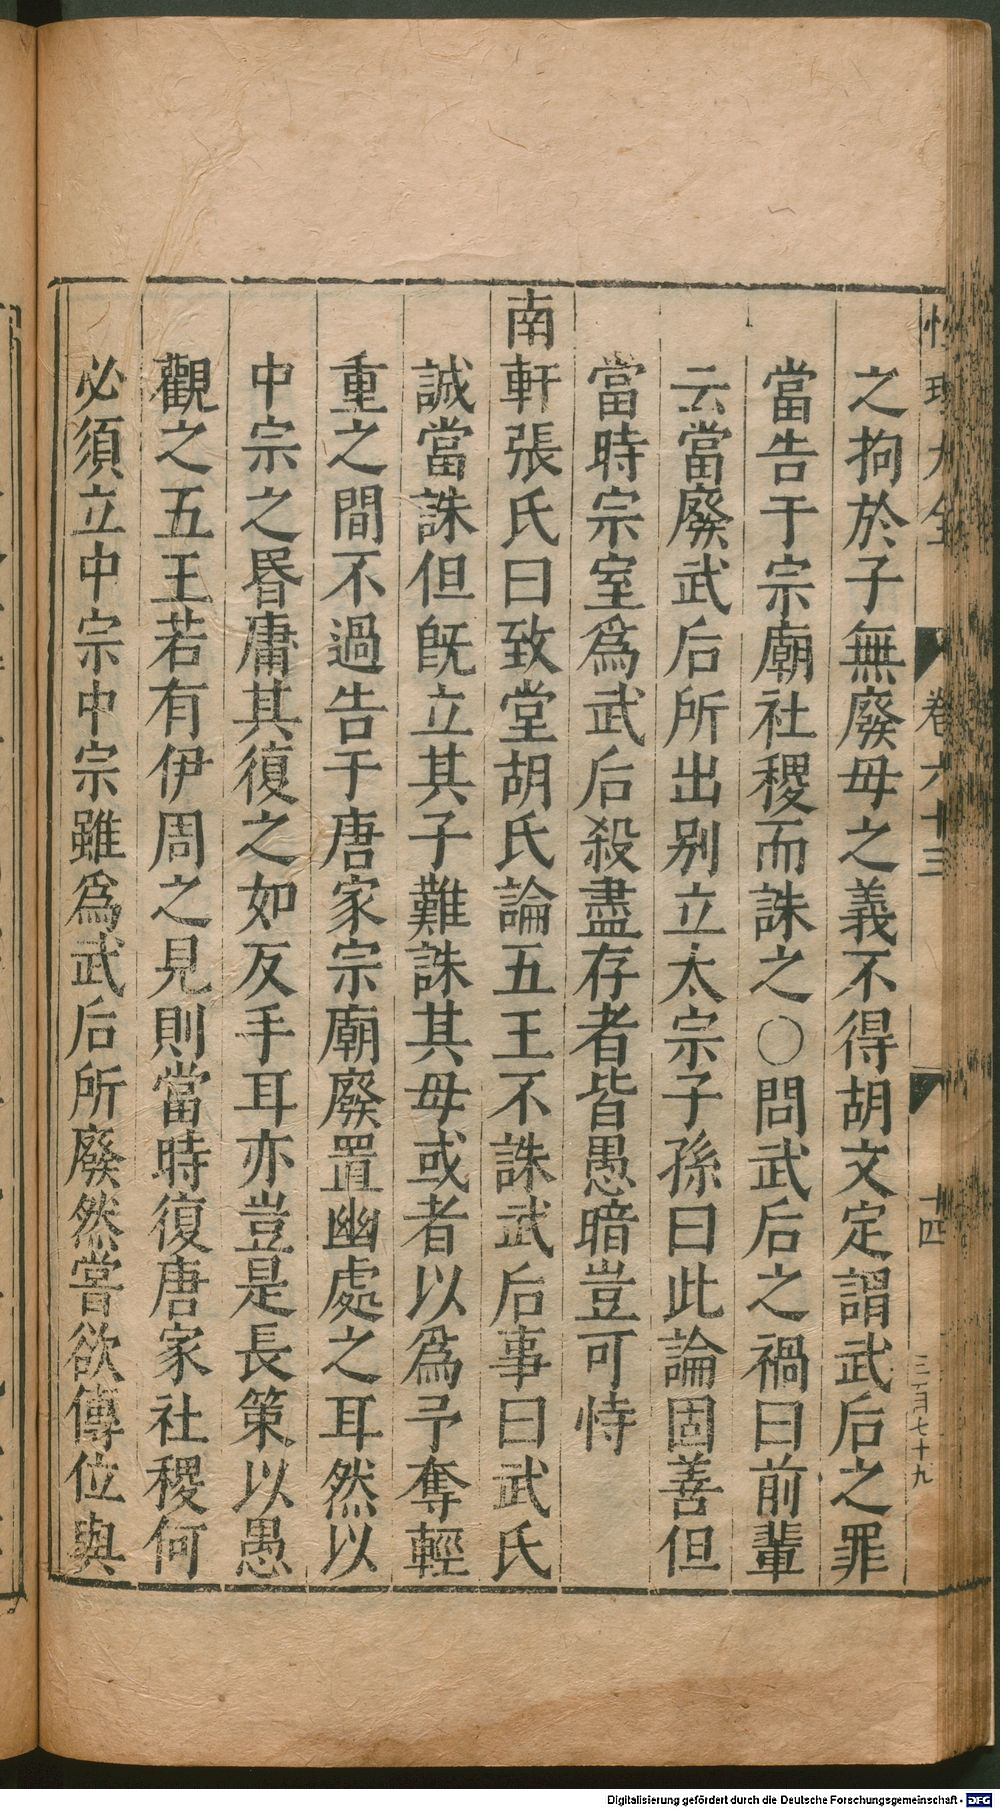 性理大全 卷六十三 十四 三百七十九
之拘於子無廢母之義不得胡文定謂武后之罪
當告于宗廟社稷而誅之○問武后之禍曰前輩
云當廢武后所出别立太宗子孫曰此論固善但
當時宗室爲武后殺盡存者皆愚暗豈可恃
南軒張氏曰致堂胡氏論五王不誅武后事曰武氏
誠當誅但旣立其子難誅其母或者以爲予奪輕
重之間不過告于唐家宗廟廢置幽處之耳然以
中宗之昬庸其復之如反手耳亦豈是長策以愚
觀之五王若有伊周之見則當時復唐家社稷何
必須立中宗中宗雖爲武后所廢然嘗欲傳位與
Digitalisierung gefördert durch die Deutsche Forschungsgemeinschaft - DFG